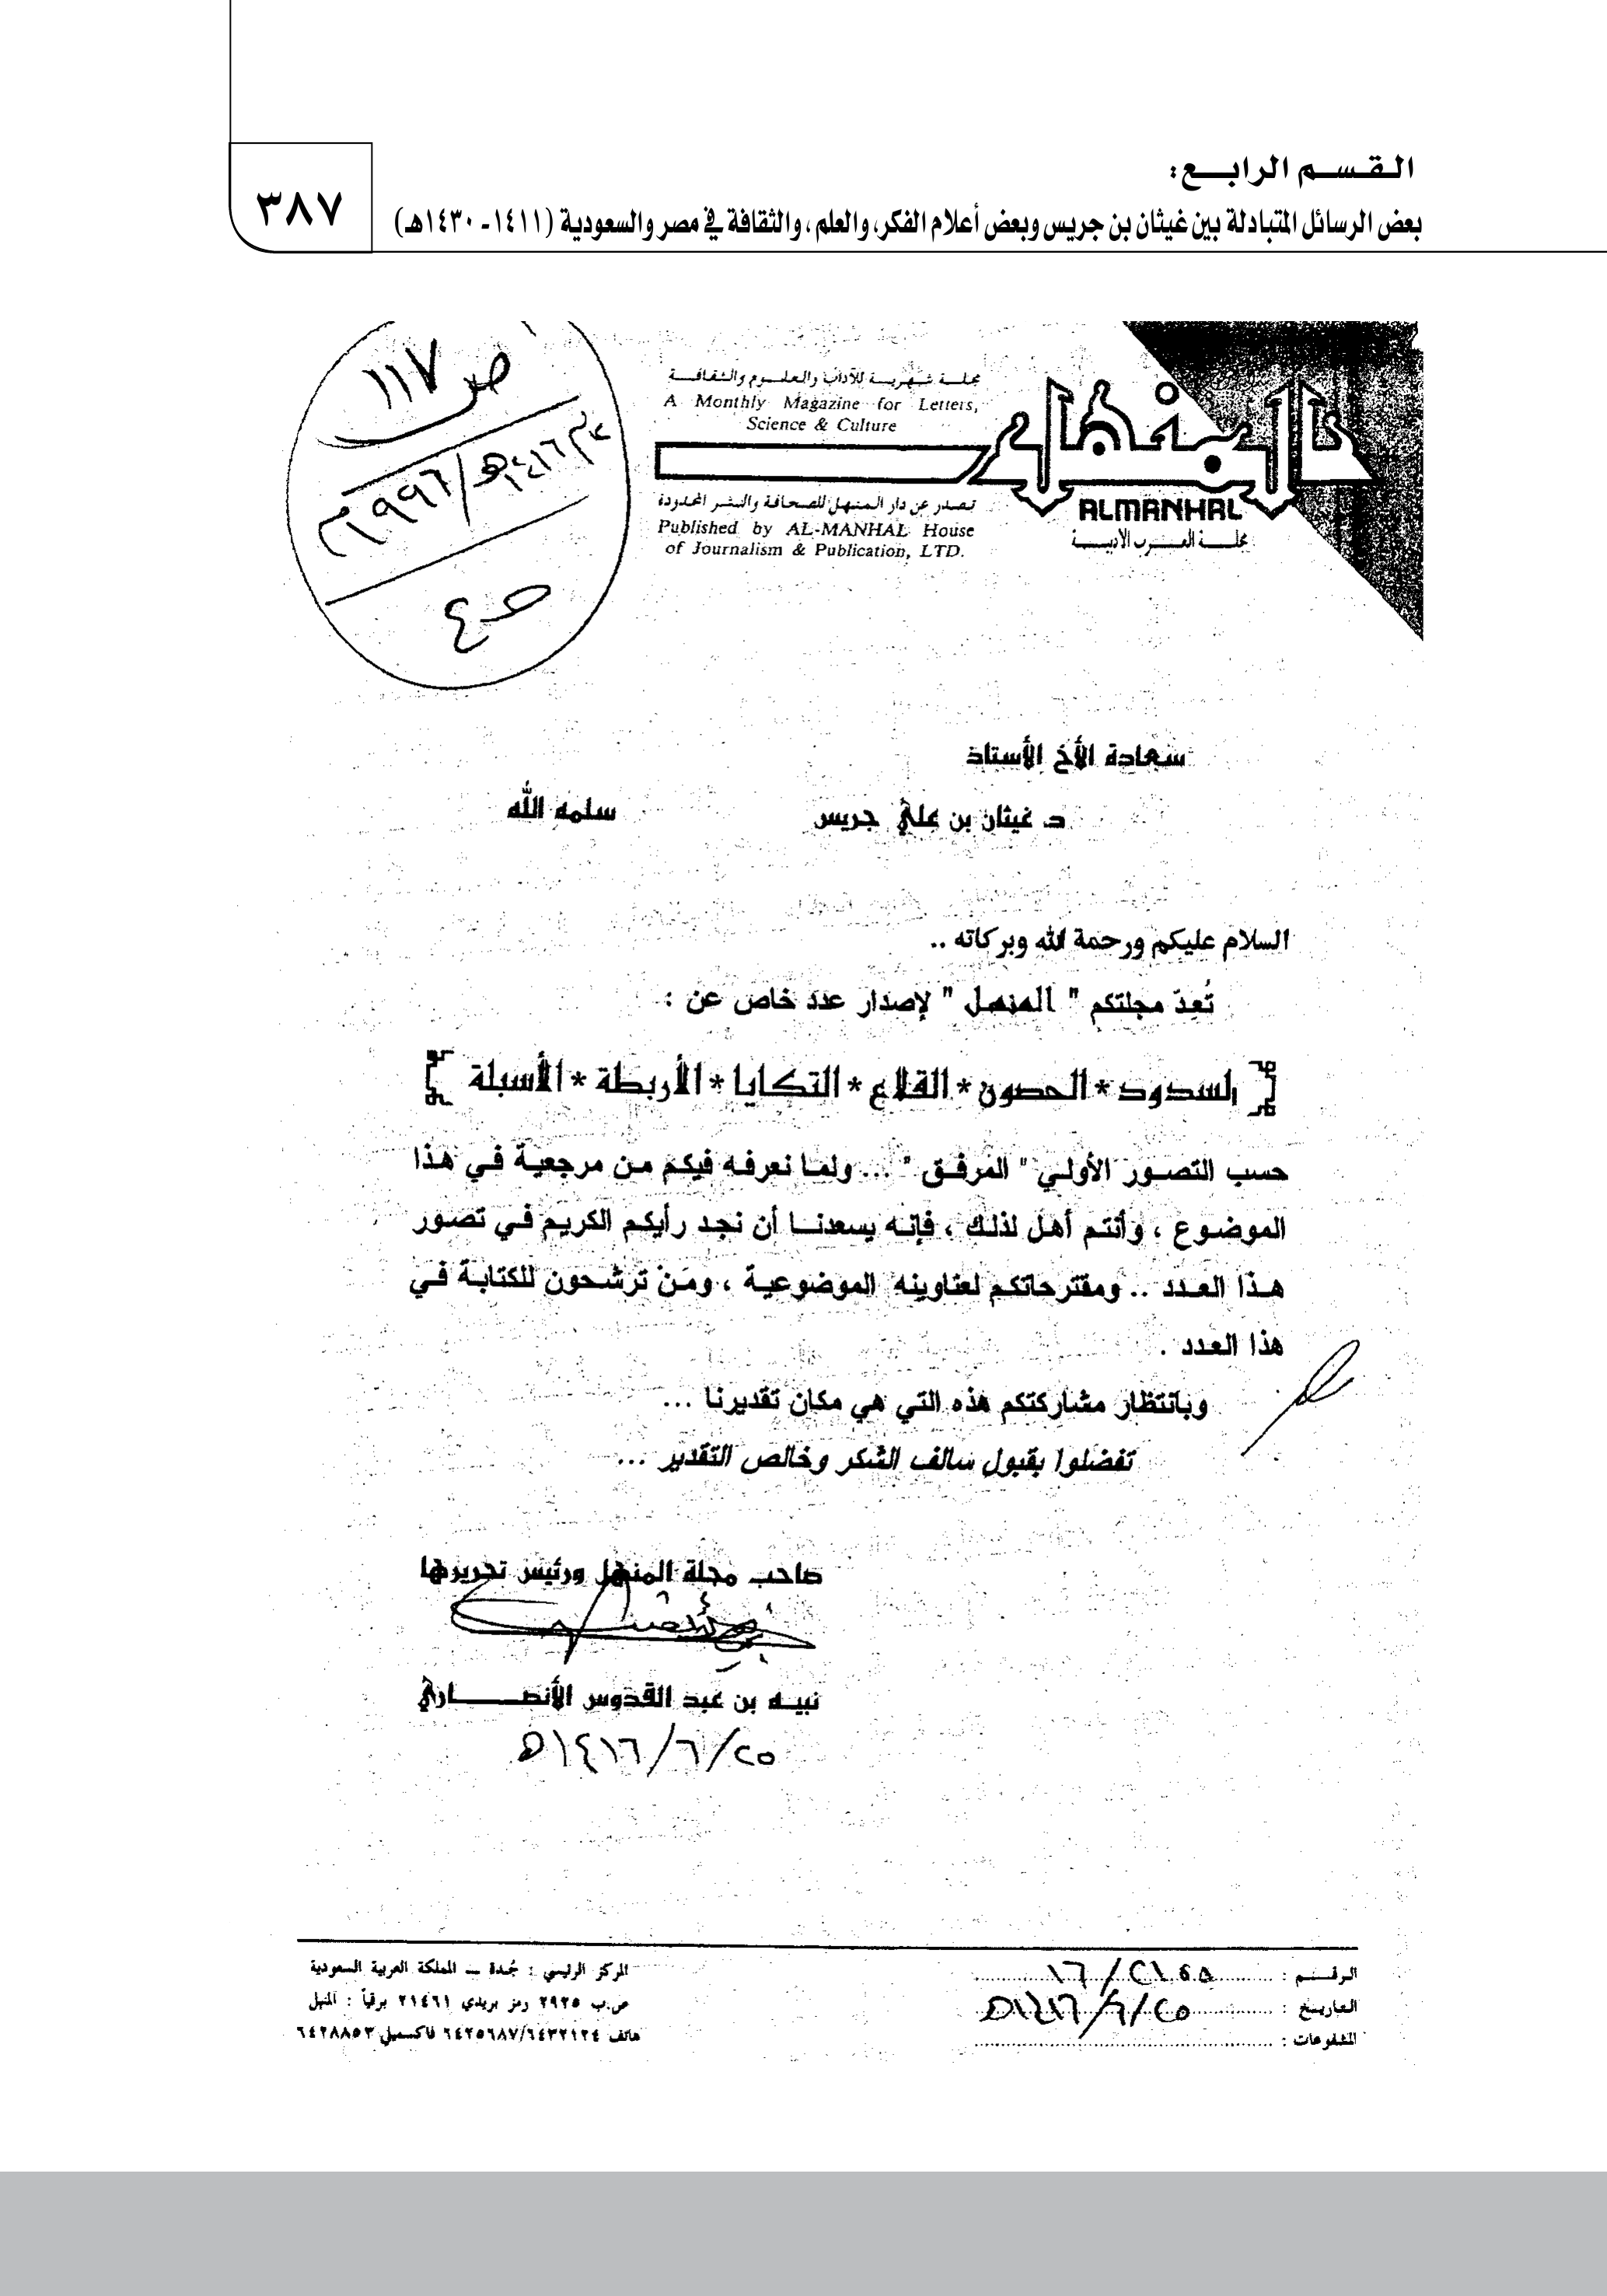 القسم الرابع:
بعض الرسائل المتبادلة بين غيثان بن جريس وبعض أعلام الفكر، والعلم، والثقافة في مصر والسعودية (١٤١١ـ ١٤٣٠هـ)
٣٨٧
ص ١١٧
١٤١٦هـ/١٩٩٦م
مجلة شهرية للآداب والعلوم والثقافة
A Monthly Magazine for Letters,
Science & Culture
المنهل
ALMANHAL
مجلة العرب الأدبية
تصدر عن دار المنهل للصحافة والنشر المحدودة
Published by AL-MANHAL House
of Journalism & Publication, LTD.
سعادة الأخ الأستاذ
د. غيثان بن علي جريس سلمه الله
السلام عليكم ورحمة الله وبركاته ..
تُعِدّ مجلتكم " المنهل " لإصدار عدد خاص عن :
السدود * الحصون * القلاع * التكايا * الأربطة * الأسبلة
حسب التصور الأولي " المرفق " ... ولما نعرفه فيكم من مرجعية في هذا
الموضوع ، وأنتم أهل لذلك ، فإنه يسعدنا أن نجد رأيكم الكريم في تصور
هذا العدد .. ومقترحاتكم لعناوينه الموضوعية ، ومَنْ ترشحون للكتابة في
هذا العدد .
وبانتظار مشاركتكم هذه التي هي مكان تقديرنا ...
تفضلوا بقبول سالف الشكر وخالص التقدير ...
صاحب مجلة المنهل ورئيس تحريرها
نبيه بن عبد القدوس الأنصاري
٢٥/٦/١٤١٦هـ
الرقم :
التاريخ : ٢٥/٦/١٤١٦هـ
المشفوعات :
المركز الرئيسي : جُدة ــ المملكة العربية السعودية
ص.ب ٢٩٢٥ رمز بريدي ٢١٤٦١ برقياً : المنهل
هاتف ٦٤٣٢١٢٤/٦٤٢٥٦٨٧ فاكسميلي ٦٤٢٨٨٥٣